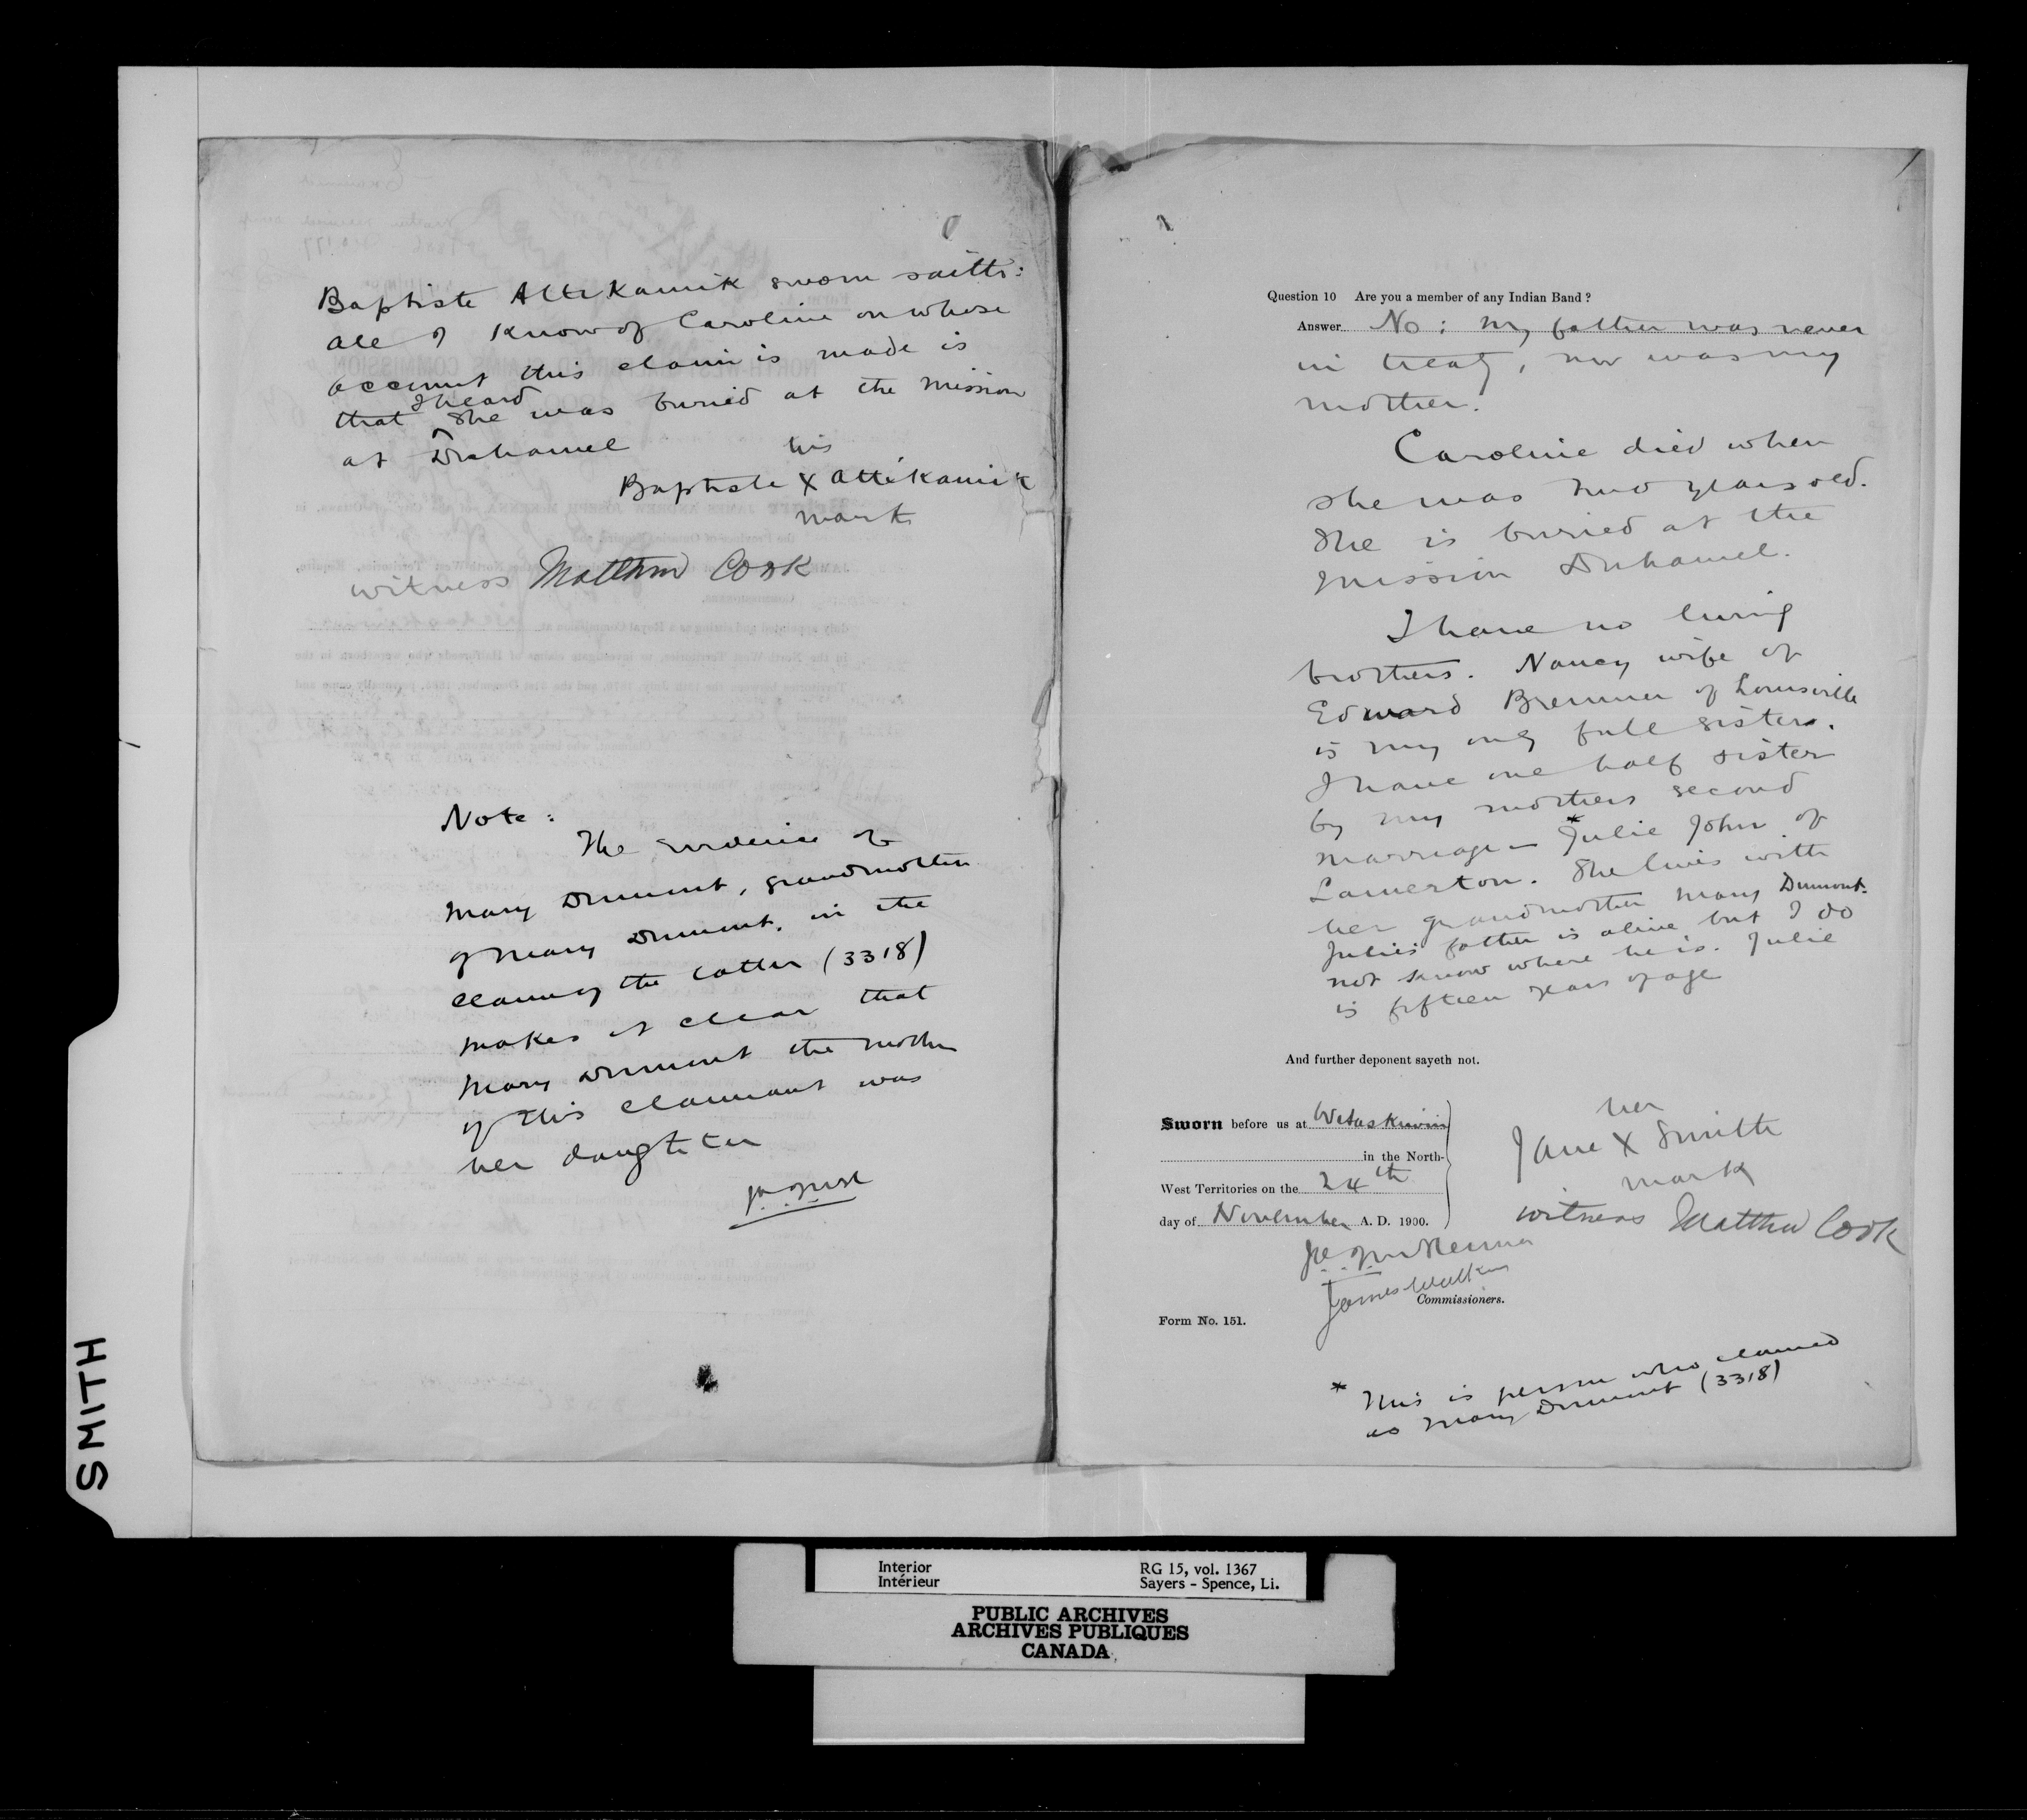 Baptiste Attikamik sworn saith:
All I know of Caroline on whose
account this claim is made is
that I heard she was buried at the Mission
at Duhamel
his
Baptiste X Attikamik
mark
witness Matthew Cook
Note:
The evidence of
Mary Dumont, grandmother
of Mary Dumont, in the
claim of the latter (3318)
makes it clear that
Mary Dumont the mother
of this claimant was
her daughter
SMITH
Question 10 Are you a member of any Indian Band ?
Answer No : My father was never
in treaty, nor was my
mother.
Caroline died when
she was two years old.
She is buried at the
Mission Duhamel.
I have no living
brothers. Nancy wife of
Edward Bremner of Louisville
is my only full sister.
I have one half sister
by my mothers second
marriage – *Julie John of
Lamerton. She lives with
her grandmother Mary Dumont.
Julie's father is alive but I do
not know where he is. Julie
is fifteen years of age
And further deponent sayeth not.
Sworn before us at Wetaskiwin
in the North-
West Territories on the 24th
day of November A. D. 1900.
her
Jane X Smith
mark
witness Matthew Cook
J.A.J. McKenna
James Walker
Commissioners.
Form No. 151.
* This is person who claimed
as Mary Dumont (3318)
Interior
Intérieur
RG 15, vol. 1367
Sayers - Spence, Li.
PUBLIC ARCHIVES
ARCHIVES PUBLIQUES
CANADA